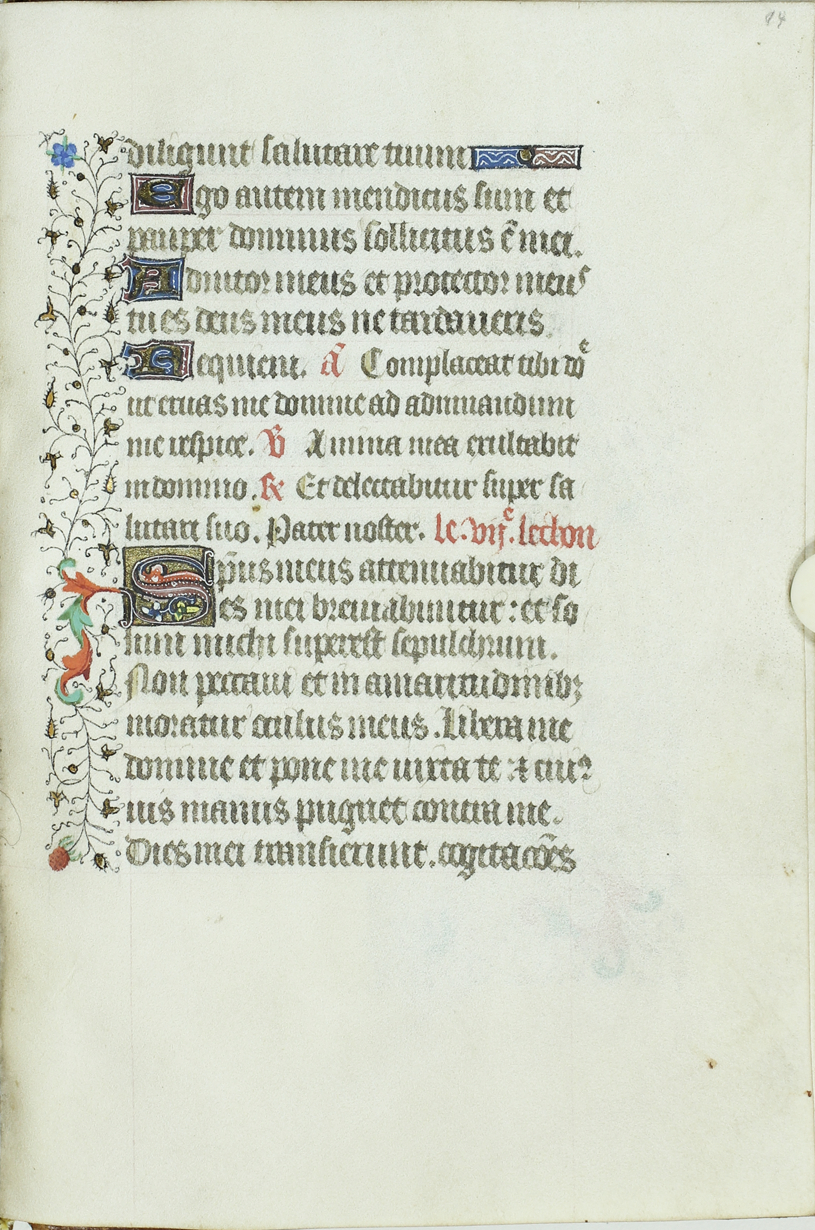 94
diligunt salutare tuum
Ego autem mendicus sum et
pauper dominus sollicitus ē mei.
Adiutor meus et protector meus
tu es deus meus ne tardaueris.
Requiem. a Complaceat tibi dōe
ut eruas me domine ad adiuuandum
me respice. v̄ Anima mea exultabit
in domino. ℟ Et delectabitur super sa
lutari suo. Pater noster. le. vije. lechon
Sp̄us meus attenuabitur di
es mei breuiabuntur: et so
lum michi superest sepulchrum.
Non peccaui et in amaritudinibꝫ
moratur oculus meus. Libera me
domine et pone me iuxta te: ⁊ cuiꝰ
uis manus pugnet contra me.
Dies mei transierunt. cogitacōēs